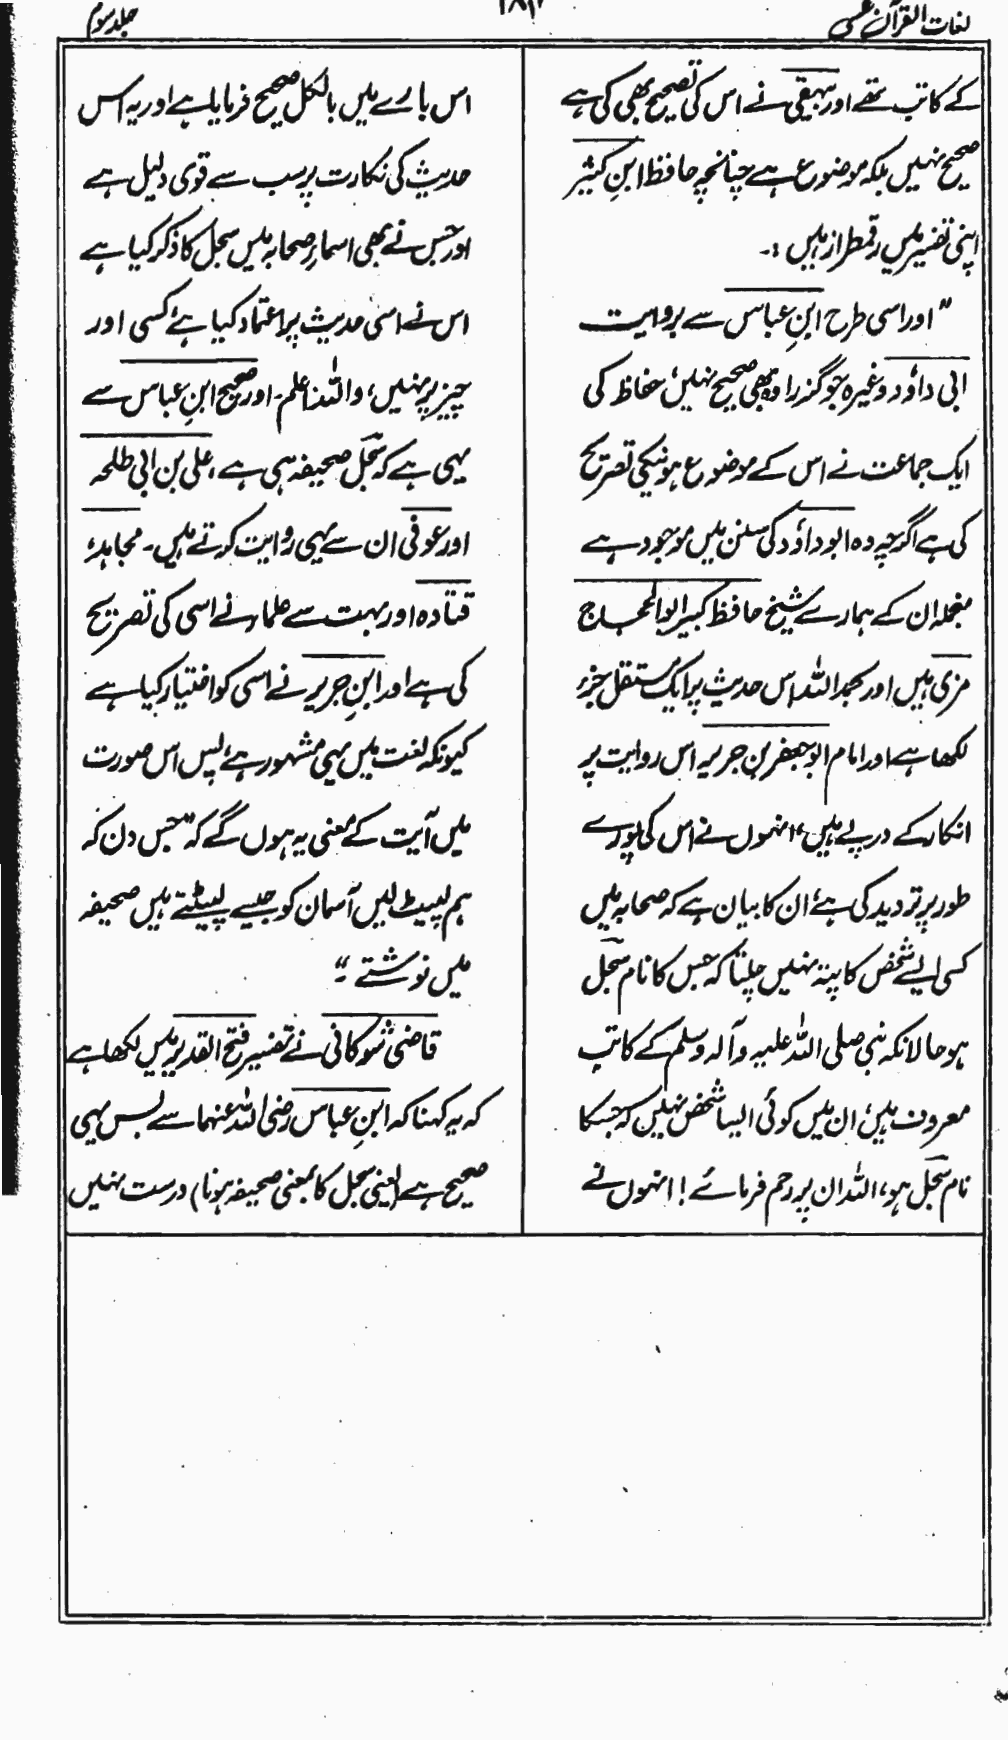 لغات القرآن
جلد سوم
کے کاتب تھے اور بیہقی نے اس کی تصحیح بھی کی ہے
صحیح نہیں بلکہ موضوع ہے چنانچہ حافظ ابنِ کثیر
اپنی تفسیر میں رقمطراز ہیں :۔
” اور اسی طرح ابنِ عباس سے بروایت
ابی داؤد وغیرہ جو گذرا وہ بھی صحیح نہیں، حفاظ کی
ایک جماعت نے اس کے موضوع ہونیکی تصریح
کی ہے اگرچہ وہ ابوداؤد کی سنن میں موجود ہے
منجملہ ان کے ہمارے شیخ حافظ کبیر ابوالحجاج
مزی ہیں اور بحمداللہ اس حدیث پر ایک مستقل جزء
لکھا ہے اور امام ابوجعفر بن جریر اس روایت پر
انکار کے درپے ہیں، انہوں نے اس کی پورے
طور پر تردید کی ہے، ان کا بیان ہے کہ صحابہ میں
کسی ایسے شخص کا پتہ نہیں چلتا کہ جس کا نام سجل
ہو حالانکہ نبی صلی اللہ علیہ وآلہ وسلم کے کاتب
معروف ہیں، ان میں کوئی ایسا شخص نہیں کہ جسکا
نام سجل ہو، اللہ ان پر رحم فرمائے ! انہوں نے
اس بارے میں بالکل صحیح فرمایا ہے اور یہ اس
حدیث کی نکارت پر سب سے قوی دلیل ہے
اور جس نے بھی اسماءِ صحابہ میں سجل کا ذکر کیا ہے
اس نے اسی حدیث پر اعتماد کیا ہے، کسی اور
چیز پر نہیں، واللہ اعلم۔ اور صحیح ابنِ عباس سے
یہی ہے کہ سجل صحیفہ ہی ہے، علی بن ابی طلحہ
اور عوفی ان سے یہی روایت کرتے ہیں۔ مجاہد،
قتادہ اور بہت سے علماء نے اسی کی تصریح
کی ہے اور ابنِ جریر نے اسی کو اختیار کیا ہے
کیونکہ لغت میں یہی مشہور ہے، پس اس صورت
میں آیت کے معنی یہ ہوں گے کہ ”جس دن کہ
ہم لپیٹ لیں آسمان کو جیسے لپیٹتے ہیں صحیفہ
میں نوشتے “۔
قاضی شوکانی نے تفسیر فتح القدیر میں لکھا ہے
کہ یہ کہنا کہ ابنِ عباس رضی اللہ عنہما سے بس یہی
صحیح ہے (یعنی سجل کا بمعنی صحیفہ ہونا) درست نہیں